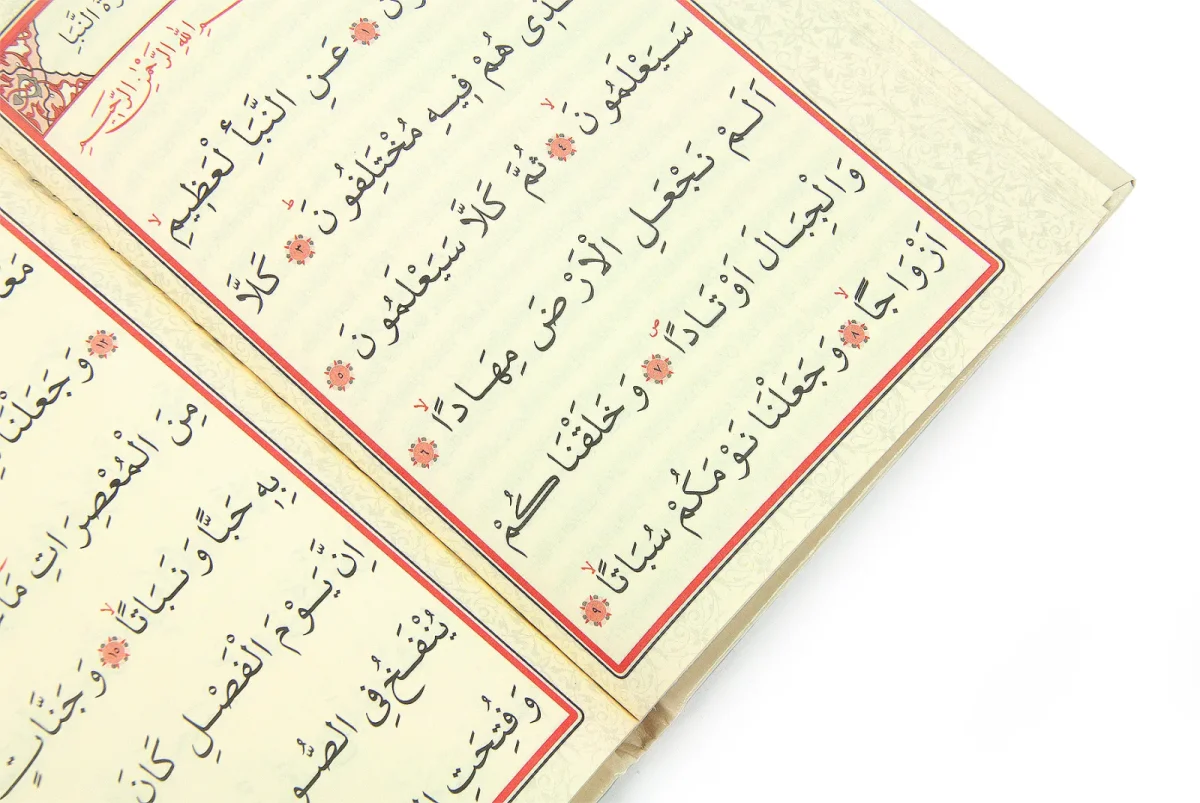 النَّبَأِ
اللّٰهِ الرَّحْمٰنِ الرَّحِيمِ
١ عَنِ النَّبَأِ لْعَظِيمِ
ـذِى هُمْ فِيهِ مُخْتَلِفُونَ ٣ كَلَّا
سَيَعْلَمُونَ ٤ ثُمَّ كَلَّا سَيَعْلَمُونَ ٥
اَلَمْ نَجْعَلِ الْاَرْضَ مِهَادًا ٦
وَالْجِبَالَ اَوْتَادًا ٧ وَخَلَقْنَاكُمْ
اَزْوَاجًا ٨ وَجَعَلْنَا نَوْمَكُمْ سُبَاتًا ٩
١٢ وَجَعَلْنَا
مِنَ الْمُعْصِرَاتِ
بِهِ حَبًّا وَنَبَاتًا ١٥ وَجَنَّاتٍ
اِنَّ يَوْمَ الْفَصْلِ كَانَ
يُنْفَخُ فِى الصُّو
وَفُتِحَتِ